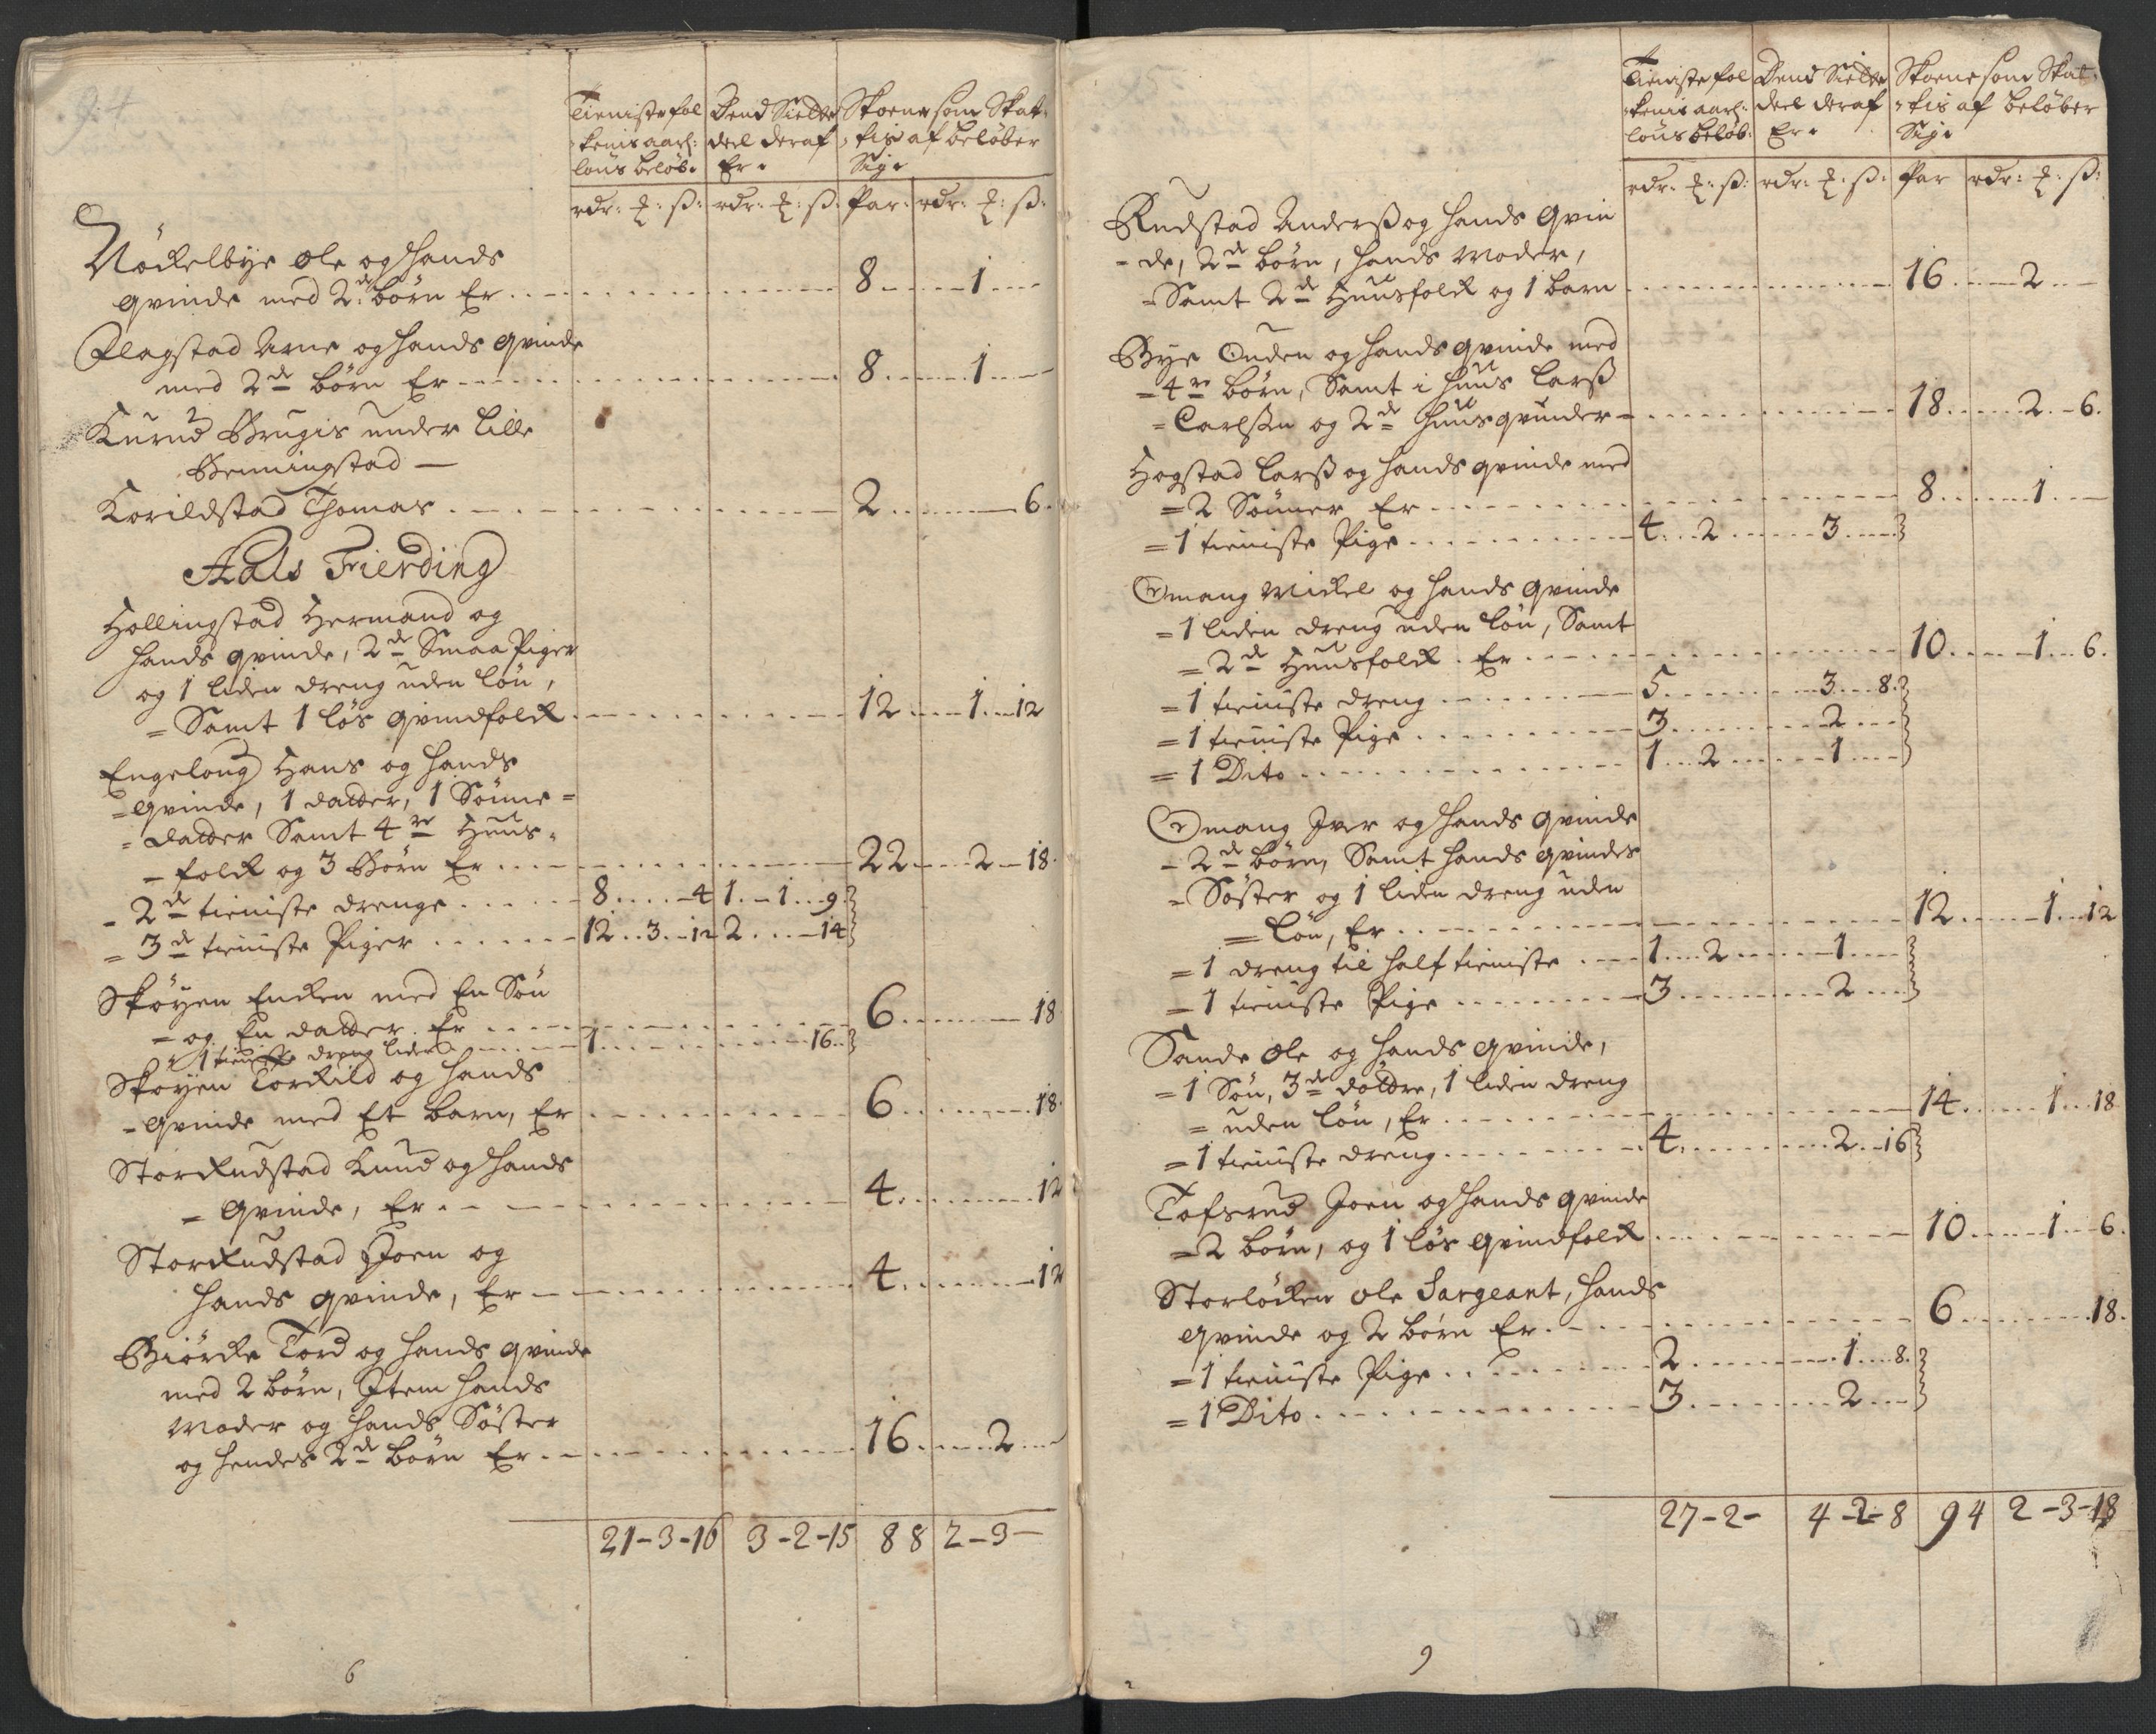 Tieniste fol Dend Siette Skoene som Skat-
-kenis aarl: deel deraf -tis af beløber
løns beløb. Er. Sig.
rdr: ƺ: ß: rdr: ƺ: ß: Par: rdr: ƺ: ß:
Nöckelbye Ole og hands
qvinde med 2de børn Er 8 1
Flagstad Arne og hands qvinde
med 2de børn Er 8 1
Kurud Brugis under Lille
Benningstad
Korildstad Thomas 2 6
Aals Fierding
Hollingstad Hermand og
hands qvinde, 2de Smaa Piger
og 1 liden dreng uden løn,
= Samt 1 løs qvindfolck 12 1 12
Engelaug Hans og hands
= qvinde, 1 datter, 1 Sønne =
= datter Samt 4re Huus-
= folck og 3 Børn Er 22 2 18
= 2de tieniste drenge 8 4 1 1 9
= 3de tieniste Piger 12 3 12 2 14
Skøyen Encken med En Søn
= og En datter Er 6 18
1 tieniste dreng liden 1 16
Skøyen Torckild og hands
= qvinde med Et barn, Er 6 18
Storckudstad Knud og hands
= qvinde, Er 4 12
Storckudstad Joen og
hands qvinde, Er 4 12
Biörcke Tord og hands qvinde
med 2 børn, Item hands
Moder og hands Søster
og hendes 2de børn Er 16 2
21-3-16 3-2-15 88 2-3-
6
Tieniste fol Dend Siette Skoene som Skat-
-kenis aarl: deel deraf -tis af beløber
løns beløb: Er. Sig.
rdr: ƺ: ß: rdr: ƺ: ß: Par rdr: ƺ: ß:
Rudstad Anderß og hands Qvin
= de, 2de børn, hands Moder,
= Samt 2de Huusfolck og 1 barn 16 2
Bye Ouden og hands qvinde med
= 4re børn, Samt i huus Larß
= Carlßen og 2de huusqvinder 18 2 6.
Hogstad Larß og hands qvinde med
= 2 Sønner Er 8 1
= 1 tieniste Pige 4 2 3
Omang Mickel og hands qvinde
= 1 liden dreng uden løn, Samt
= 2de Huusfolck Er 10 1 6.
= 1 tieniste dreng 5 3 8.
= 1 tieniste Pige 3 2
= 1 Dito 1 2 1
Omang Iver og hands qvinde
= 2de børn, Samt hands qvindes
= Søster og 1 liden dreng uden
= løn, Er 12 1 12
= 1 dreng til half tieniste 1 2 1
= 1 tieniste Pige 3 2
Sande Ole og hands qvinde,
= 1 Søn, 3de døttre, 1 liden dreng
= uden løn, Er 14 1 18
= 1 tieniste dreng 4 2 16
Tofsrud Joen og hands qvinde
= 2 børn, og 1 løs qvindfolck 10 1 6.
Storløcken Ole Sargeant, hands
qvinde og 2 børn Er 6 18.
= 1 tieniste Pige 2 1 8.
= 1 Dito 3 2
27-2- 4-2-8 94 2-3-18
9